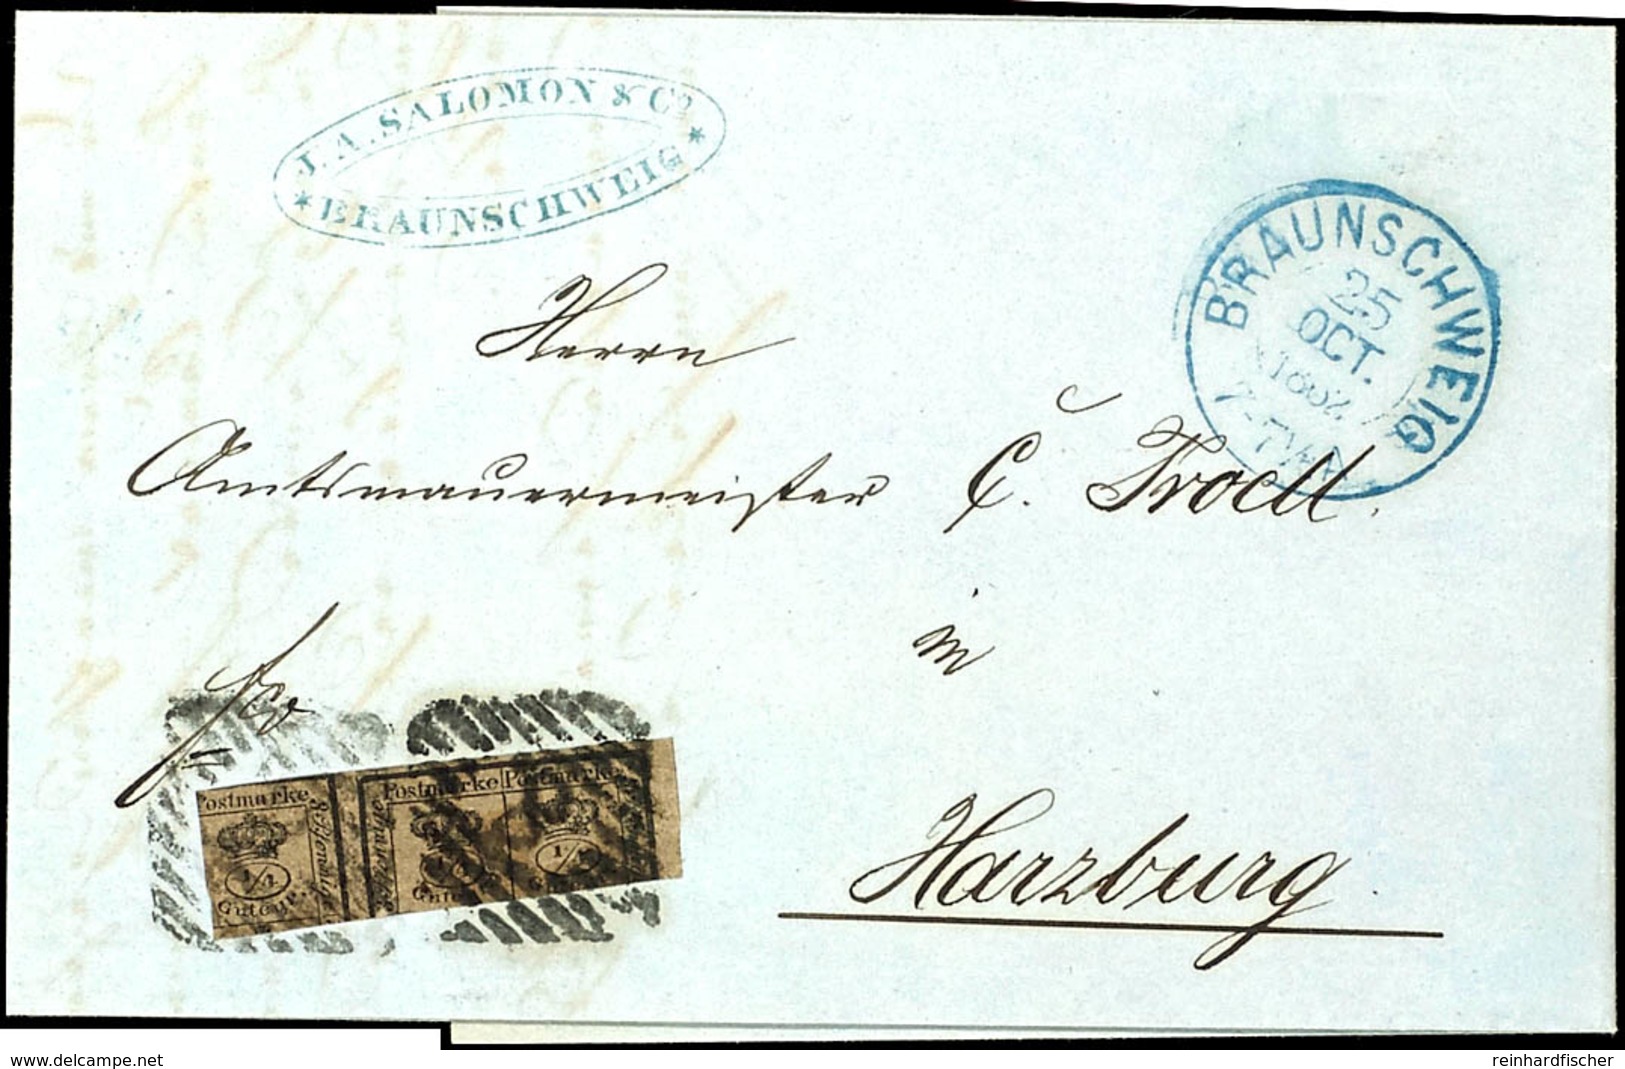 J. A. SALOMON & Co
* BRAUNSCHWEIG *
BRAUNSCHWEIG
25
OCT.
1862
7-7½
Herrn
Amtsmauermeister C. Troell.
in
fco
Harzburg
Postmarke Postmarke Postmarke
¼ ¼ ¼
Gutegr.
www.delcampe.net
reinhardfischer